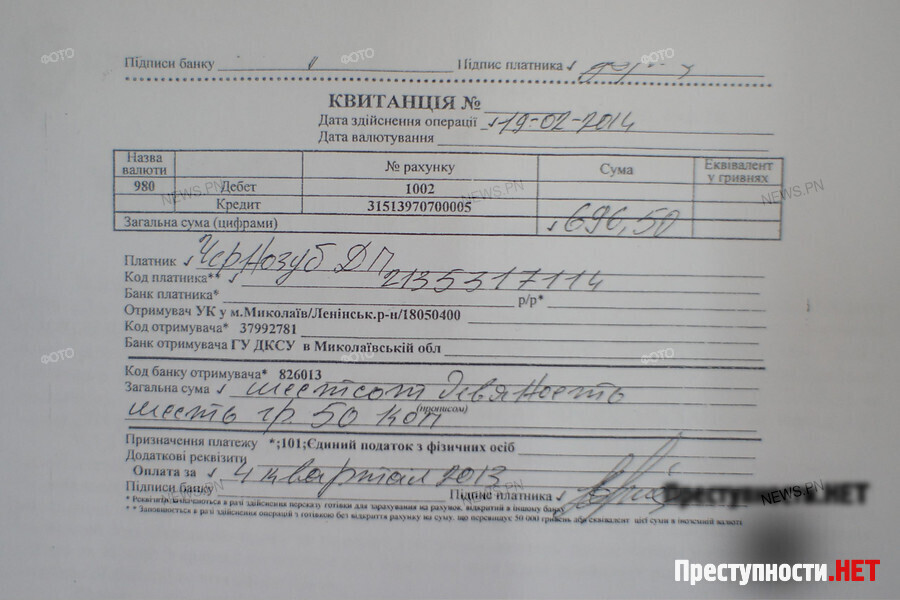 Підписи банку Підпис платника
КВИТАНЦІЯ №
Дата здійснення операції 19-02-2014
Дата валютування
Назва валюти № рахунку Сума Еквівалент у гривнях
980 Дебет 1002
Кредит 31513970700005
Загальна сума (цифрами) 696,50
Платник Чернозуб ДП
Код платника** 2135317114
Банк платника* р/р*
Отримувач УК у м.Миколаїв/Ленінськ.р-н/18050400
Код отримувача* 37992781
Банк отримувача ГУ ДКСУ в Миколаївській обл
Код банку отримувача* 826013
Загальна сума шестсот девяность
(прописом)
шесть гр. 50 коп
Призначення платежу *;101;Єдиний податок з фізичних осіб
Додаткові реквізити
Оплата за 4 квартал 2013
Підписи банку Підпис платника
* Реквізити заповнюються в разі здійснення переказу готівки для зарахування на рахунок, відкритий в іншому банку
* * Заповнюється в разі здійснення операцій з готівкою без відкриття рахунку на суму, що перевищує 50 000 гривень або еквівалент цієї суми в іноземній валюті
Преступности.НЕТ
Преступности.НЕТ
ФОТО ФОТО ФОТО
NEWS.PN NEWS.PN NEWS.PN
ФОТО ФОТО ФОТО
NEWS.PN NEWS.PN NEWS.PN